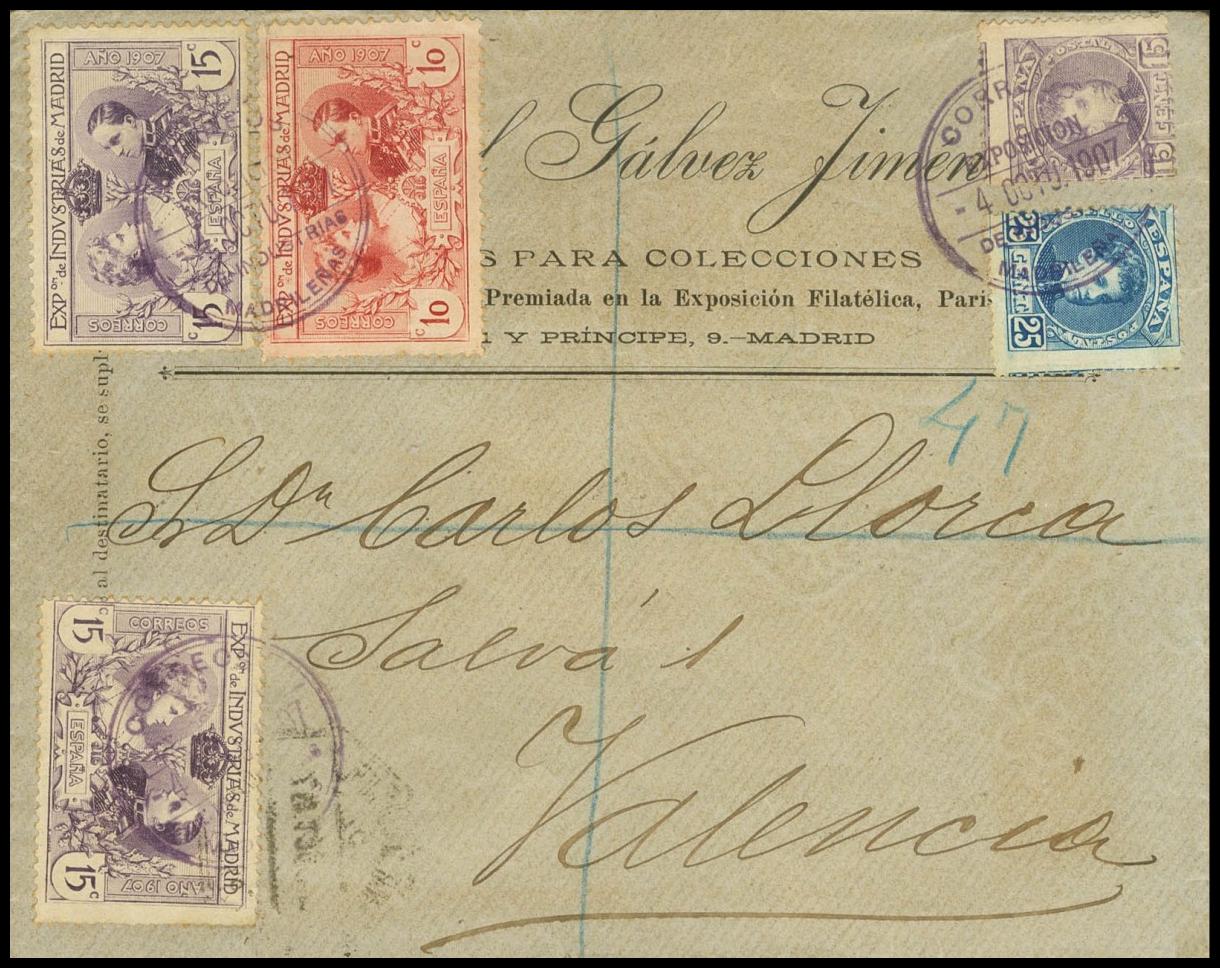 AÑO 1907
15 c
EXPon. de INDVSTRIAS de MADRID
ESPAÑA
CORREOS
15 c
AÑO 1907
10 c
EXPon. de INDVSTRIAS de MADRID
ESPAÑA
CORREOS
10 c
INDUSTRIAS
MADRILEÑAS
Gálvez Jimen
PARA COLECCIONES
Premiada en la Exposición Filatélica, Parí
1 Y PRÍNCIPE, 9.—MADRID
al destinatario, se supl
CORR
EXPOSICION
- 4 OCTU. 1907
DE
MADRILEÑA
ESPAÑA
15
25
ESPAÑA
25
47
S. Dn Carlos Llorca
Salvá 1
Valencia
15 c
CORREOS
EXPon. de INDVSTRIAS de MADRID
ESPAÑA
15 c
AÑO 1907